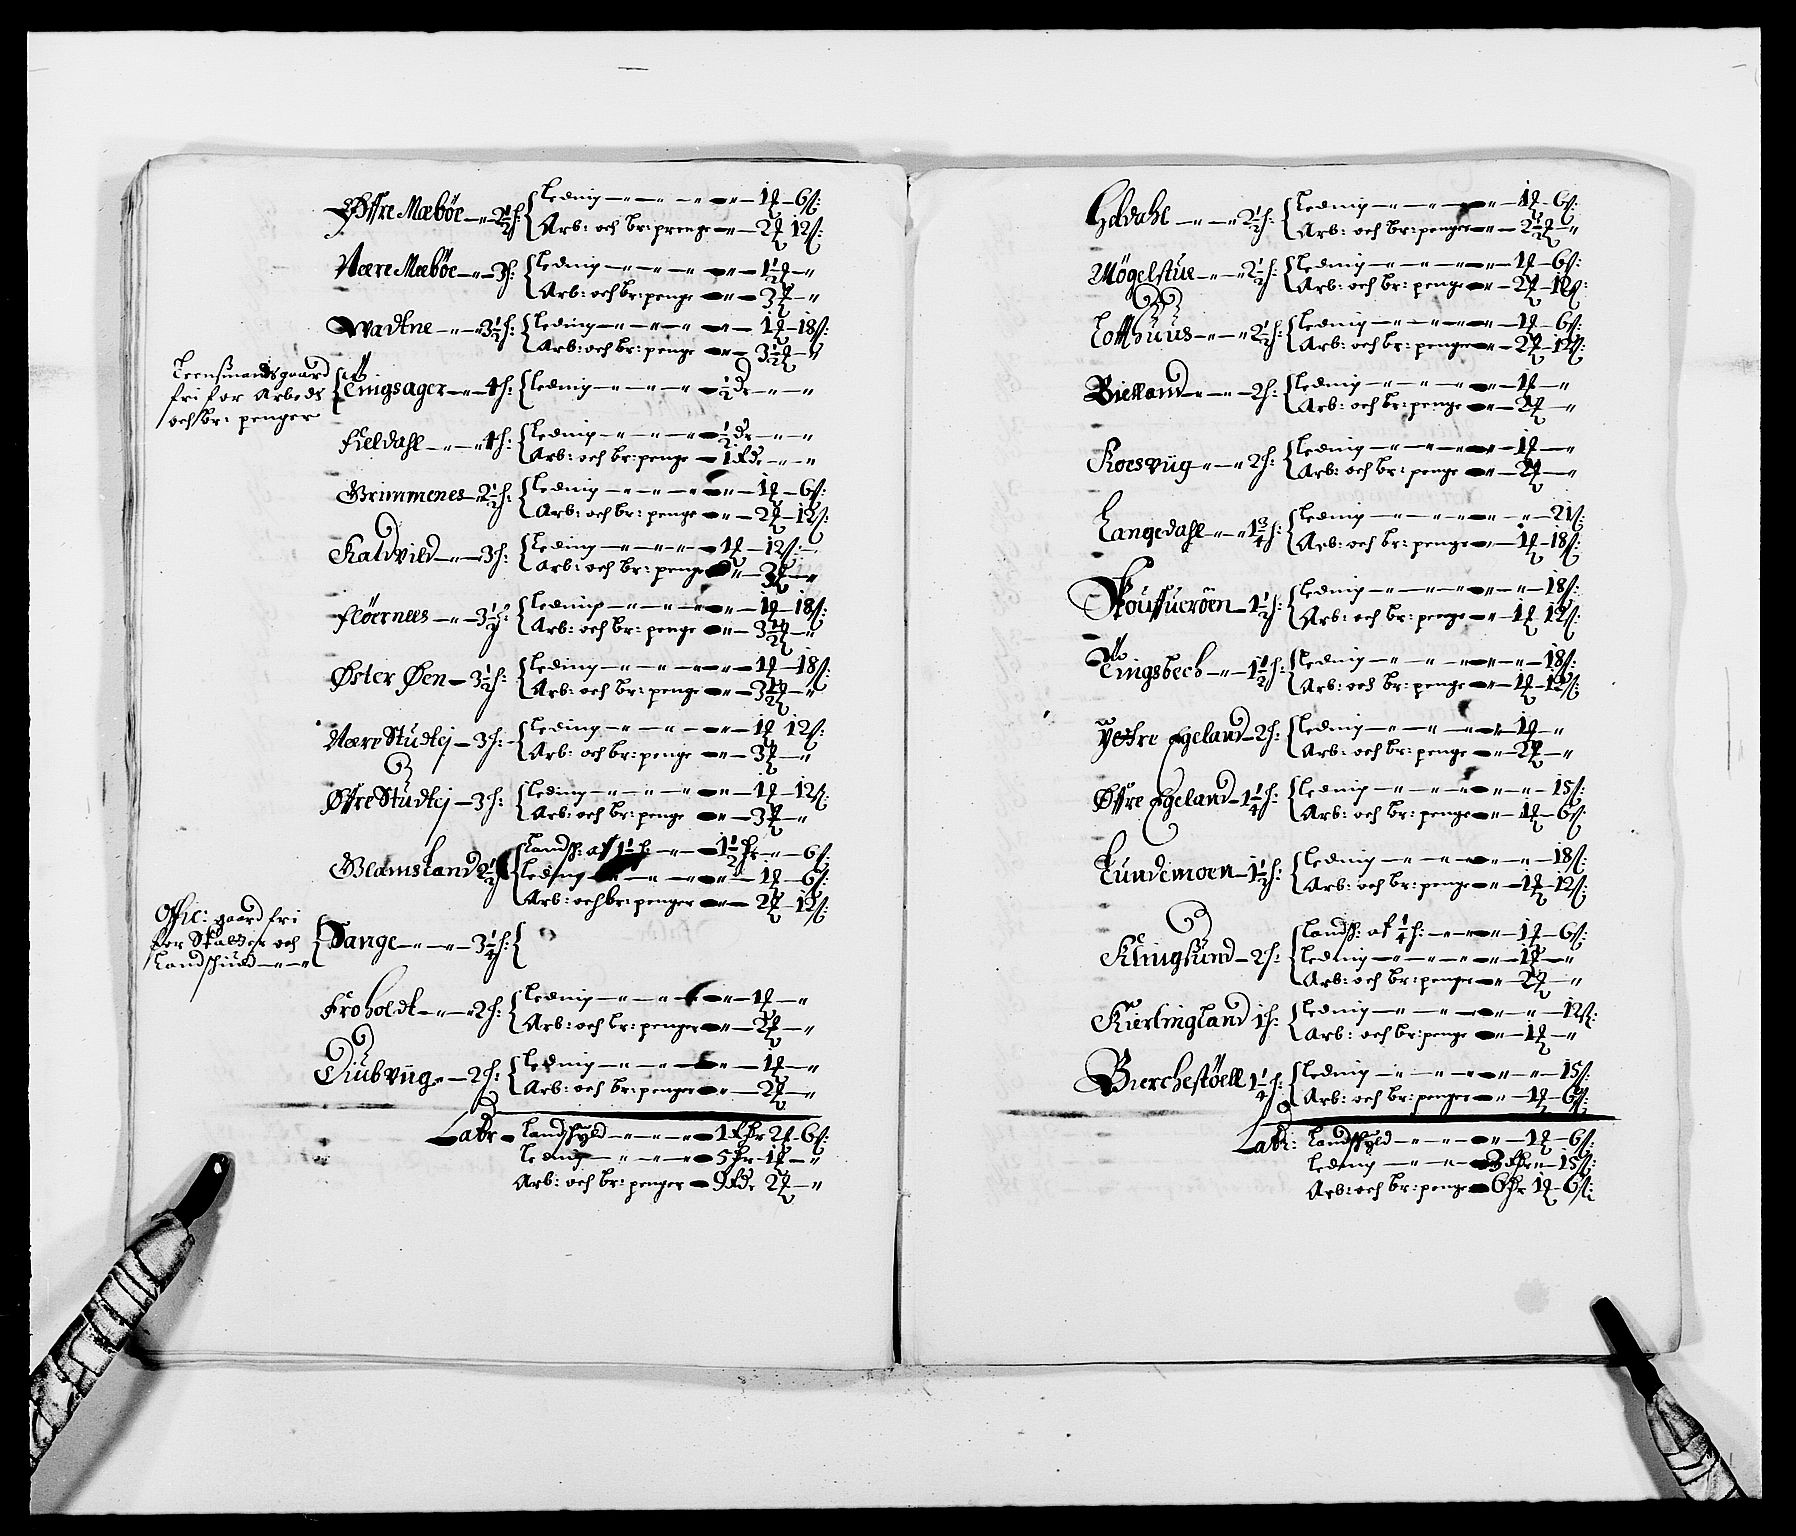 Øffre Mæbøe - 2½ h: Leding - 1 ƶ - 6 s:
Arb: och br: prenge - 2 ƶ 12 s:
Næere Mæbøe - 3 h: Leding - 1½ ƶ - "
Arb: och br: penge - 3 ƶ - "
Wadtne - 3½ h: Leding - 1 ƶ - 18 s:
Arb: och br: penge - 3½ ƶ - "
Leensmandsgaard
fri for Arbeds
och br: penger
Tingsager - 4 h: Leding - ½ dr - "
Fieldahl - 4 h: Leding - ½ dr - "
Arb: och br: penge - 1 Rdr - "
Grimmenes - 2½ h: Leding - 1 ƶ - 6 s:
Arb: och br: penge - 2 ƶ - 12 s:
Kaldvild - 3 h: Leding - 1 ƶ - 12 s:
Arb: och br: penge - 3 ƶ - "
Fløernees - 3½ h: Leding - 1 ƶ - 18 s:
Arb: och br: penge - 3½ ƶ - "
Øster Øen - 3½ h: Leding - 1 ƶ - 18 s:
Arb: och br: penge - 3½ ƶ - "
Nære Studtej - 3 h: Leding - 1 ƶ 12 s:
Arb: och br: penge - 3 ƶ - "
Øffre Studtej - 3 h: Leding - 1 ƶ - 12 s:
Arb: och br: penge - 3 ƶ - "
Glamsland 2½ h: Landsk: af 1½ h: - 1½ dr - 6 s:
Leding - 1 ƶ - 6 s:
Arb: och br: penger - 2 ƶ - 12 s:
Offic: gaard fri
for Skatter och
Landschuld
Tange - 3¼ h:
Froholdt - 2 h: Leding - 1 ƶ - "
Arb: och br: penger - 2 ƶ - "
Diubviig - 2 h: Leding - 1 ƶ - "
Arb: och br: penger - 2 ƶ - "
Latr - Landschyld - 1 Rdr 2 ƶ - 6 s:
Leding - 5 dr - 1 ƶ - "
Arb: och br: penger - 9 Rdr 2 ƶ - "
- 2½ h: Leding - 1 ƶ - 6 s:
Arb: och br: penger - 2½ ƶ - "
Møgelstue - 2½ h: Leding - 1 ƶ - 6 s:
Arb: och br: penge - 2 ƶ - 12 s:
Loffthuus - 2½ h: Leding - 1 ƶ - 6 s:
Arb: och br: penge - 2 ƶ - 12 s:
Bielland - 2 h: Leding - 1 ƶ - "
Arb: och br: penge - 2 ƶ - "
Koesviig - 2 h: Leding - 1 ƶ - "
Arb: och br: penge - 2 ƶ - "
Langedahl - 1¾ h: Leding - 21 s:
Arb: och br: penge - 1 ƶ - 18 s:
Skouffuerøen - 1½ h: Leding - 18 s:
Arb: och br: penge - 1 ƶ 12 s:
Tingsbech - 1½ h: Leding - 18 s:
Arb: och br: penge - 1 ƶ - 12 s:
Ydtre Egeland - 2 h: Leding - 1 ƶ - "
Arb: och br: penge - 2 ƶ - "
Øffre Egeland - 1¼ h: Leding - 15 s:
Arb: och br: penge - 1 ƶ - 6 s:
Lundemoen - 1½ h: Leding - 18 s:
Arb: och br: penge - 1 ƶ - 12 s:
Klingsund - 2 h: Landsk: af ¼ h: - 1 ƶ - 6 s:
Leding - 1 ƶ - "
Arb: och br: penger - 2 ƶ - "
Kierlingland 1 h: Leding - 12 s:
Arb: och br: penge - 1 ƶ - "
Bierchestøell 1¼ h: Leding - 15 s:
Arb: och br: penger - 1 ƶ - 6 s:
Latr: Landschyld - 1 ƶ - 6 s:
Leding - 3 Rdr - 15 s:
Arb: och br: penge - 6 dr 1 ƶ - 6 s: